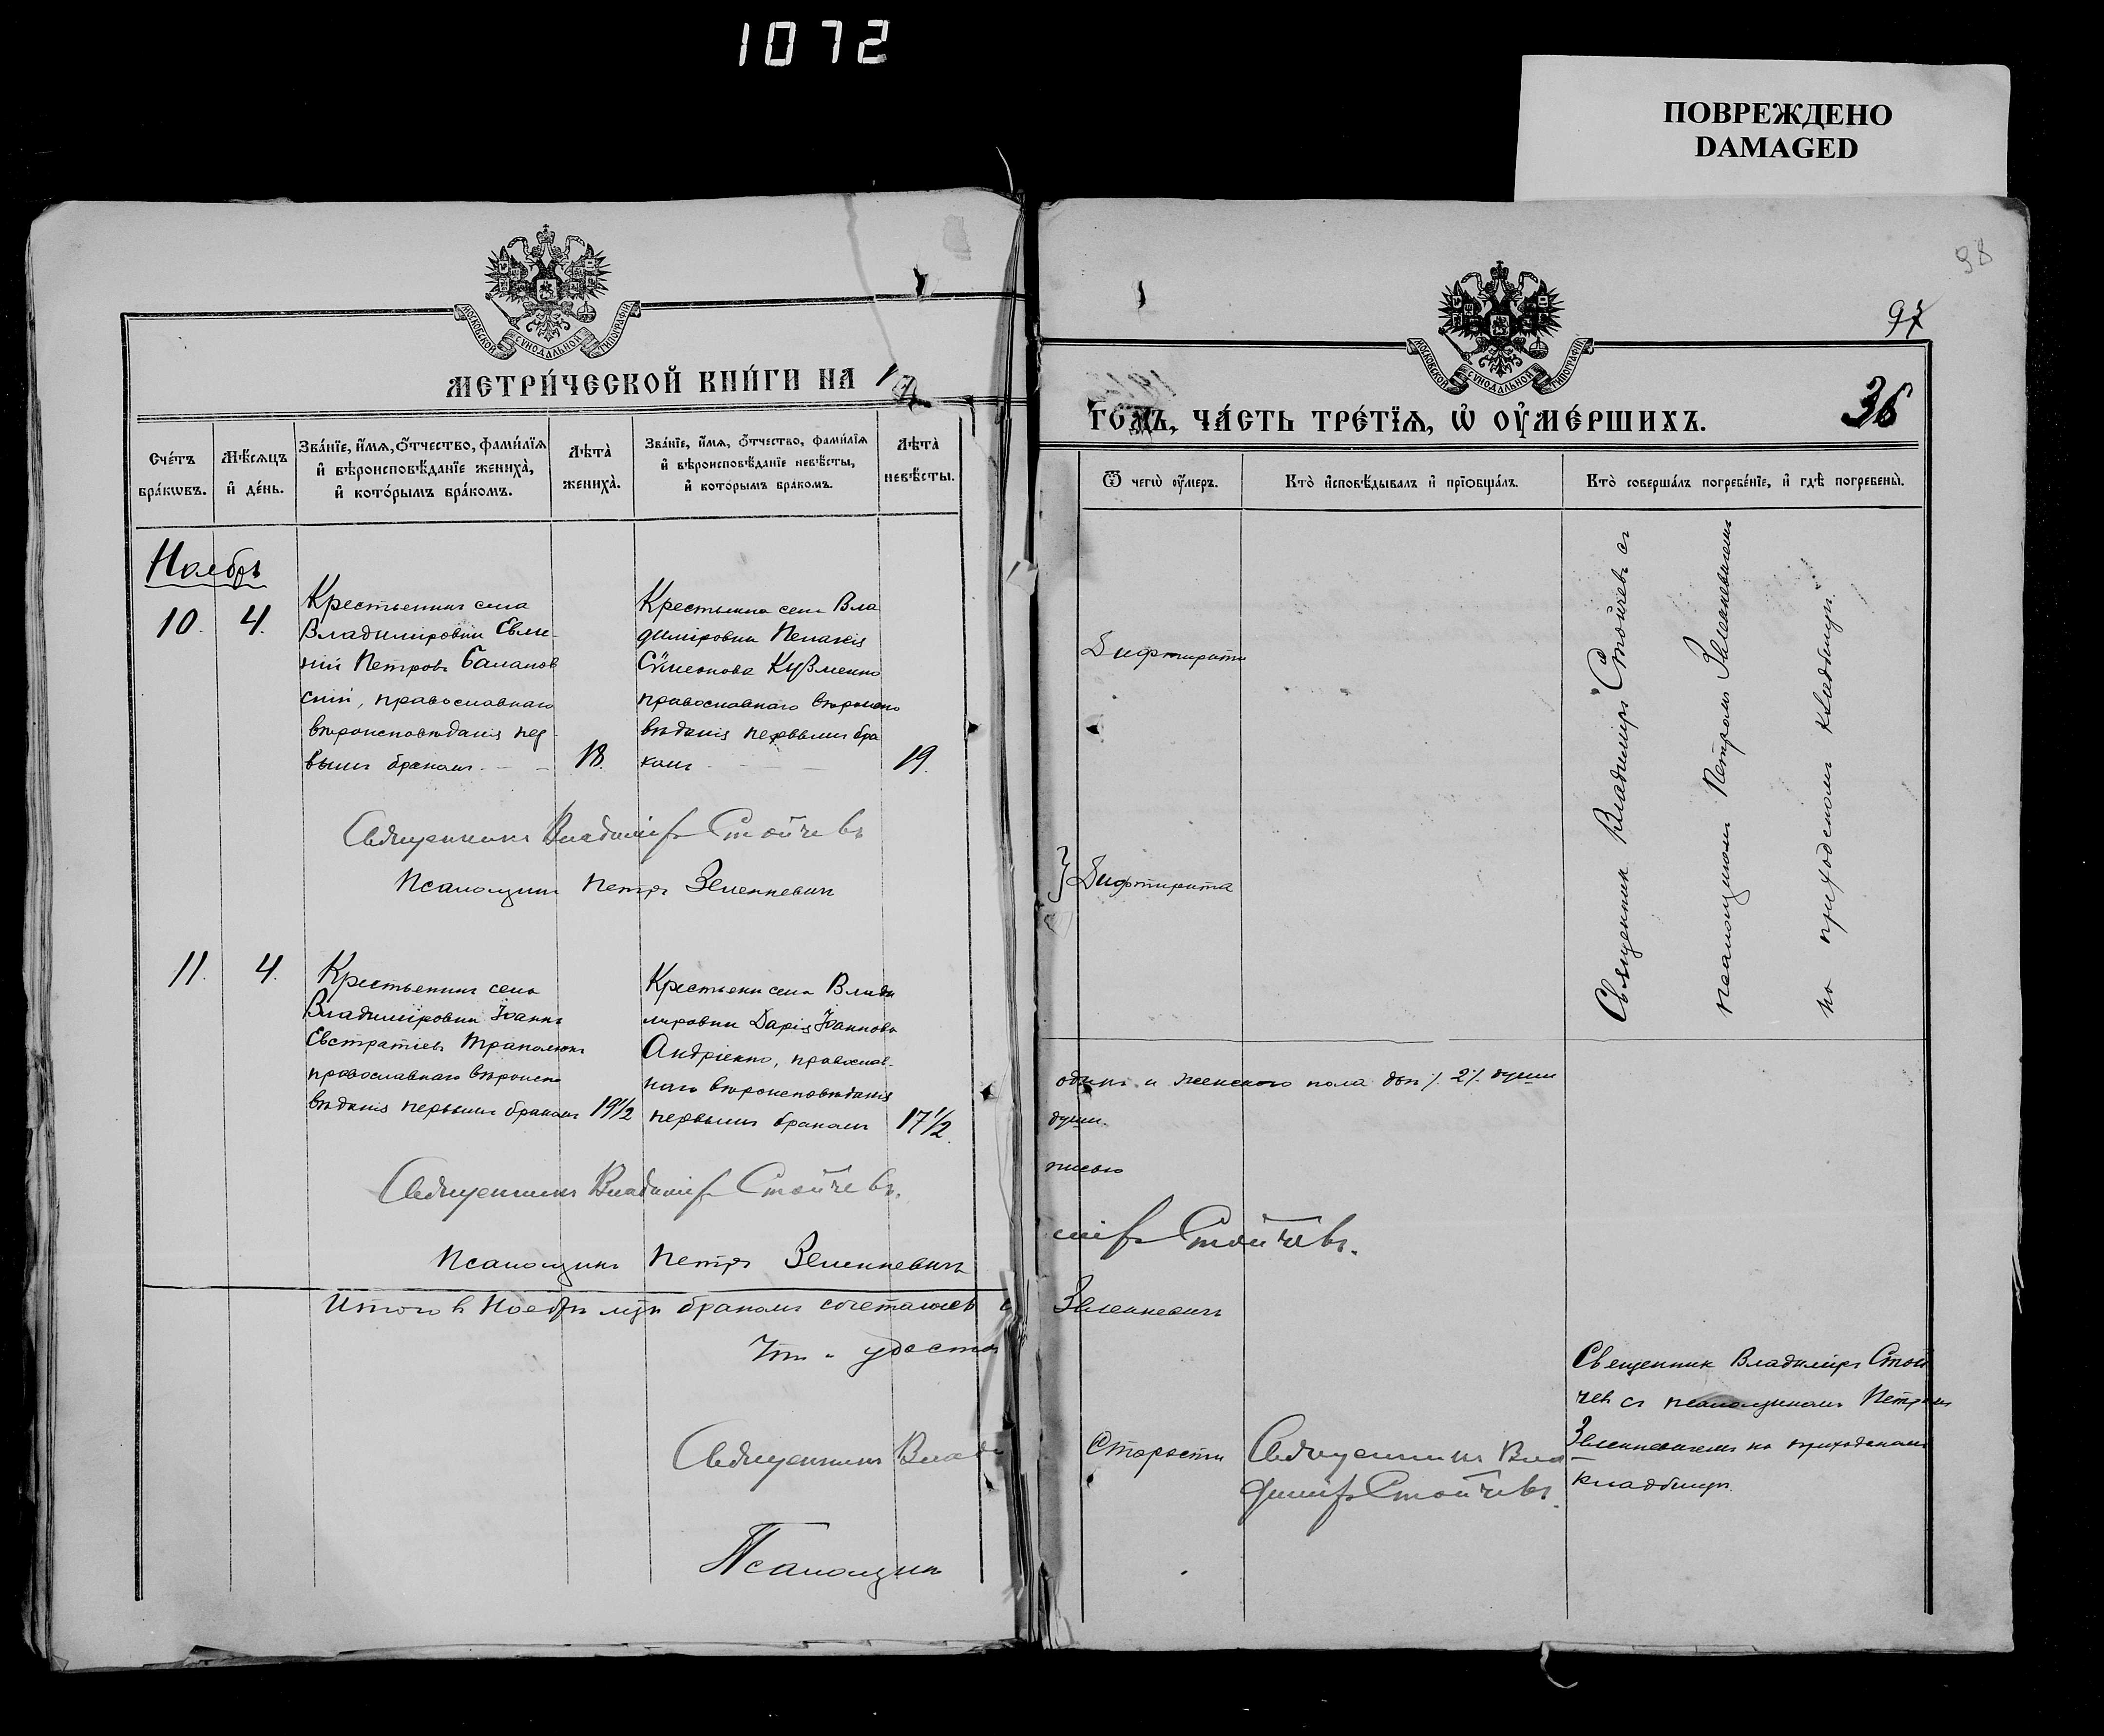 1072
ПОВРЕЖДЕНО
DAMAGED
МОСКОВСКОЙ СУНОДАЛЬНОЙ ТИПОГРАФІИ
МЕТРИ́ЧЕСКОЙ КНИ́ГИ НА
Сче́тъ бра́кѡвъ.
Мѣ́сѧцъ и҆ де́нь.
Зва́нїе, и҆́мѧ, ѻ҆́тчество, фами́лїѧ и҆ вѣроисповѣ́данїе жениха̀, и҆ кото́рымъ бра́комъ.
Лѣ́та̀ жениха̀.
Зва́нїе, и҆́мѧ, ѻ҆́тчество, фами́лїѧ и҆ вѣроисповѣ́данїе невѣ́сты, и҆ кото́рымъ бра́комъ.
Лѣ́та̀ невѣ́сты.
Ноябрь
10.
4.
Крестьянинъ села
Владиміровки Евме-
ній Петровъ Баланов
скій, православнаго
вѣроисповѣданія пер-
вымъ бракомъ
18.
Крестьянка села Вла
диміровки Пелагія
Сѵмеонова Кузменко
православнаго вѣроиспо
вѣданія первымъ бра
комъ
19.
Священникъ Владиміръ Стойчевъ
Псаломщикъ Петръ Зеленкевичъ
11.
4.
Крестьянинъ села
Владиміровки Іоаннъ
Евстратіевъ
православнаго вѣроиспо
вѣданія первымъ бракомъ
19½
Крестьянка села Влади
міровки Дарія Іоаннова
Андріенко, православ-
наго вѣроисповѣданія
первымъ бракомъ
17½.
Священникъ Владиміръ Стойчевъ.
Псаломщикъ Петръ Зеленкевичъ
Итого в Ноябрѣ м-цѣ бракомъ сочеталось
удосто
Священникъ Влади
Псаломщикъ
38
36
МОСКОВСКОЙ СУНОДАЛЬНОЙ ТИПОГРАФІИ
ГО́ДЪ, ЧА́СТЬ ТРЕ́ТЇѦ, Ѡ҆ ОУ҆МЕ́РШИХЪ.
Ѿ чегѡ̀ оу҆́меръ.
Кто̀ и҆сповѣ́дывалъ и҆ прїѡбща́лъ.
Кто̀ соверша́лъ погребе́нїе, и҆ гдѣ̀ погребены̀.
Дифтерита
Дифтерита
Священникъ Владиміръ Стойчевъ съ
псаломщикомъ Петромъ Зеленкевичемъ
на приходскомъ кладбищѣ.
одинъ и женскаго пола двѣ /. 2/. души
души.
писью
миръ Стойчевъ.
Зеленкевичъ
Старости
Священникъ Вла
диміръ Стойчевъ.
Священник Владиміръ Стой
чев съ псаломщикомъ Петромъ
Зеленкевичемъ на приходскомъ
кладбищѣ.